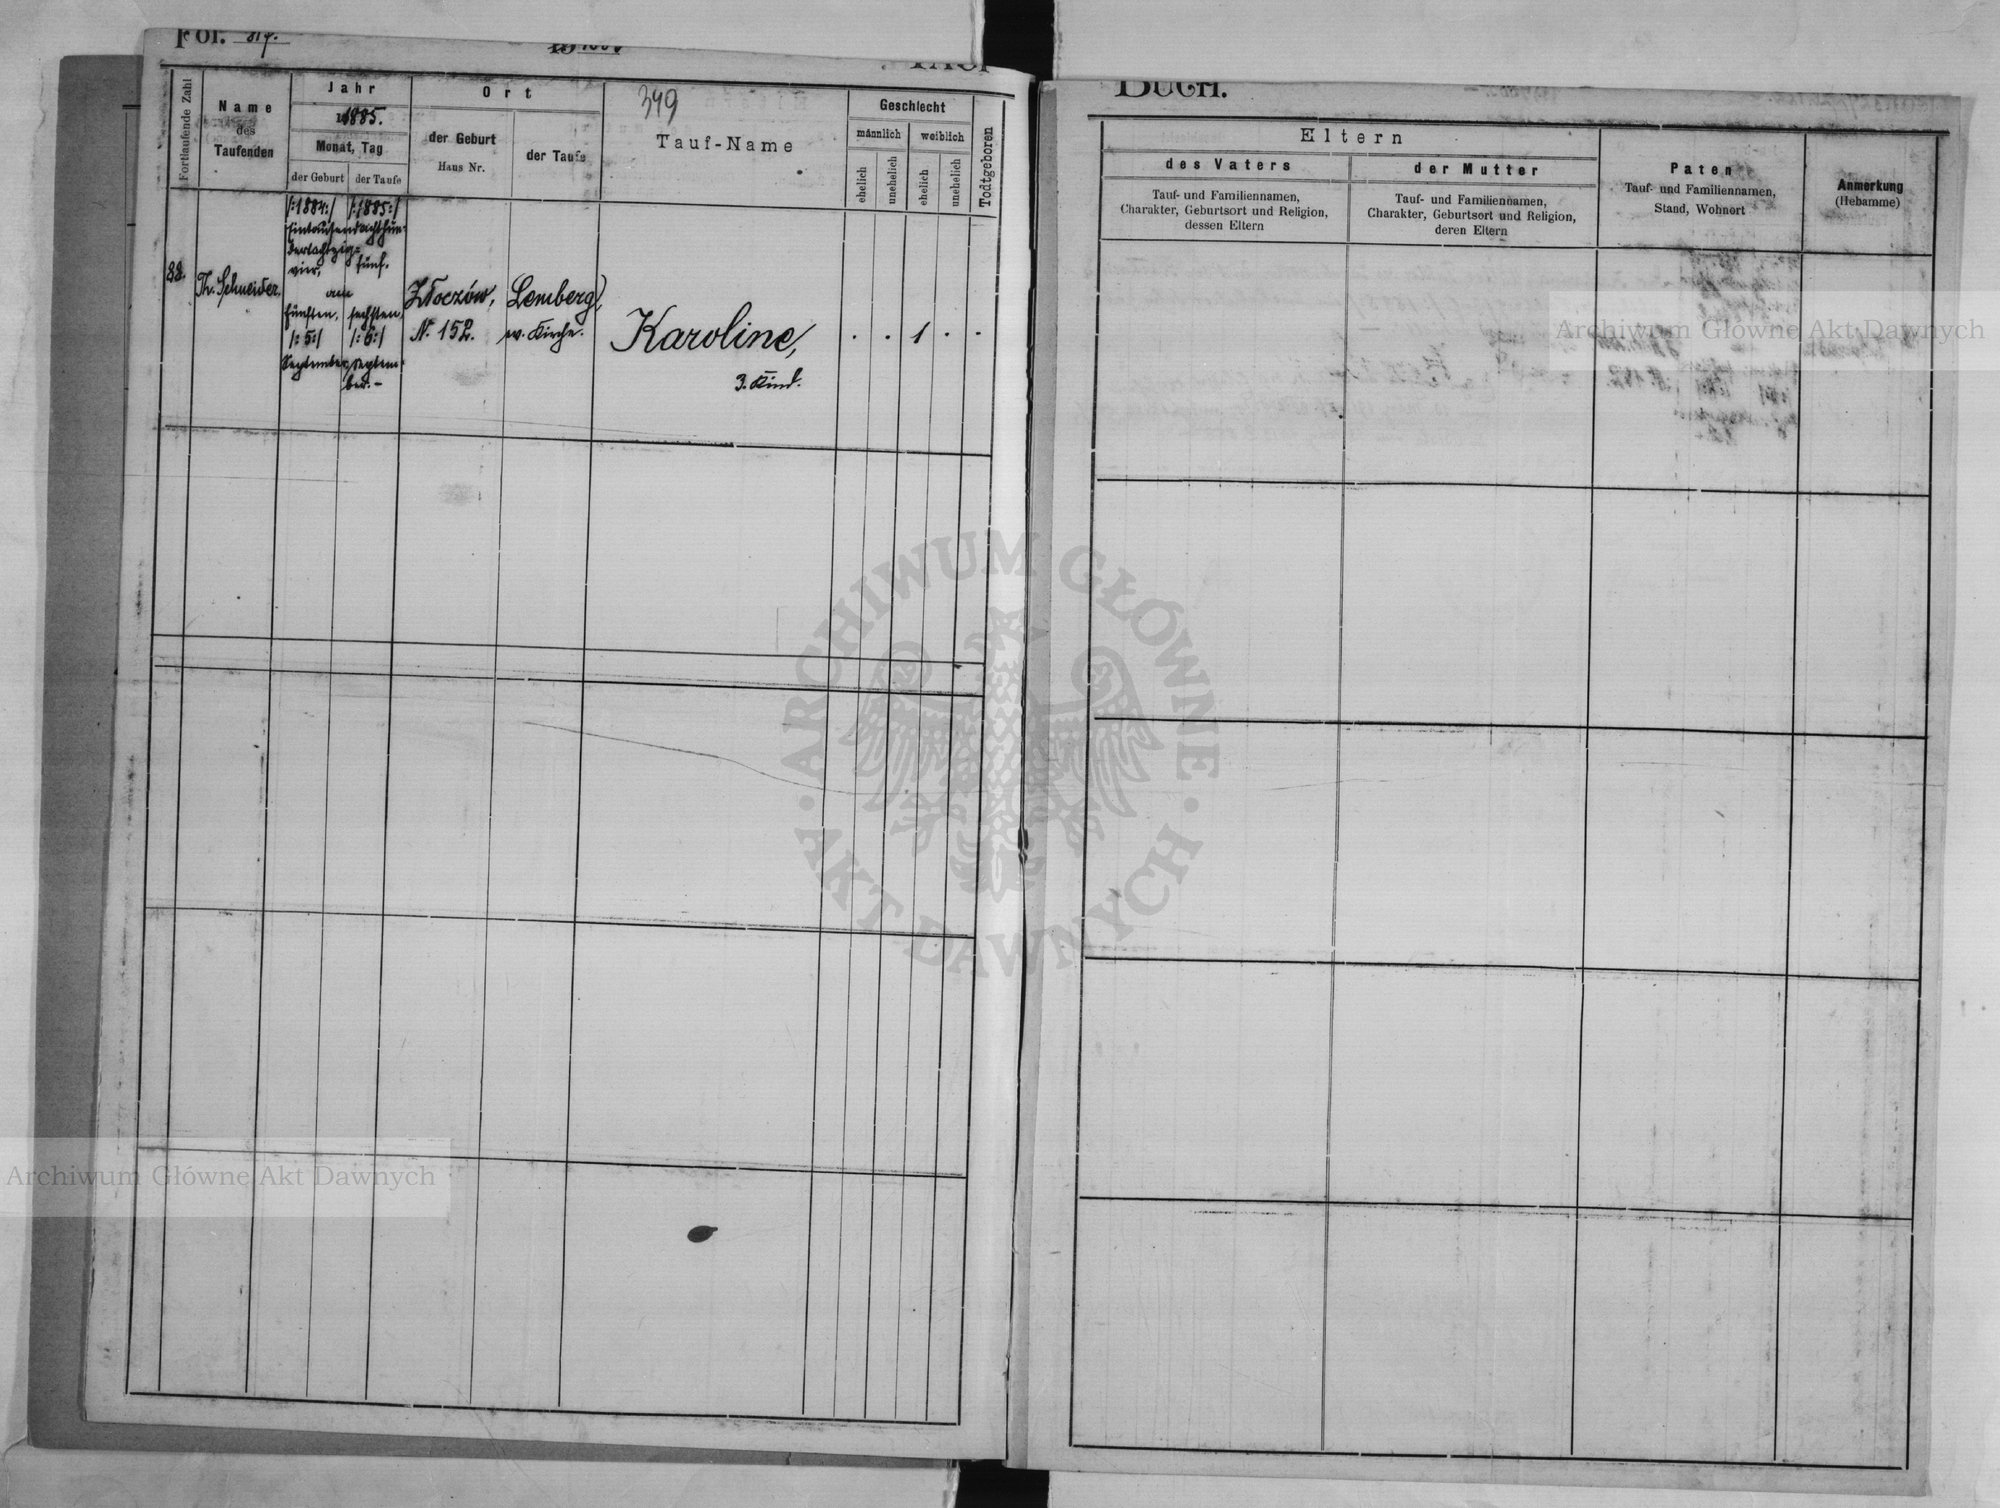 Fol. 317.
TAUF
BUCH.
Fortlaufende Zahl
Name
des
Taufenden
Jahr
1885.
Monat, Tag
der Geburt
der Taufe
Ort
der Geburt
Haus Nr.
der Taufe
349
Tauf-Name
Geschlecht
männlich
weiblich
ehelich
unehelich
ehelich
unehelich
Todtgeboren
88.
Th. Schneider.
/:1884:/ /:1885:/
Eintausendachthun-
dertachtzig=
vier, fünf.
am
fünften, sechsten,
/:5:/ /:6:/
September, Septem-
ber. –
Złoczów,
N. 152.
Lemberg,
ev. Kirche.
Karoline,
3. Kind.
. . 1 . .
Eltern
des Vaters
Tauf- und Familiennamen,
Charakter, Geburtsort und Religion,
dessen Eltern
der Mutter
Tauf- und Familiennamen,
Charakter, Geburtsort und Religion,
deren Eltern
Paten
Tauf- und Familiennamen,
Stand, Wohnort
Anmerkung
(Hebamme)
Archiwum Główne Akt Dawnych
ARCHIWUM GŁÓWNE
AKT DAWNYCH
Archiwum Główne Akt Dawnych